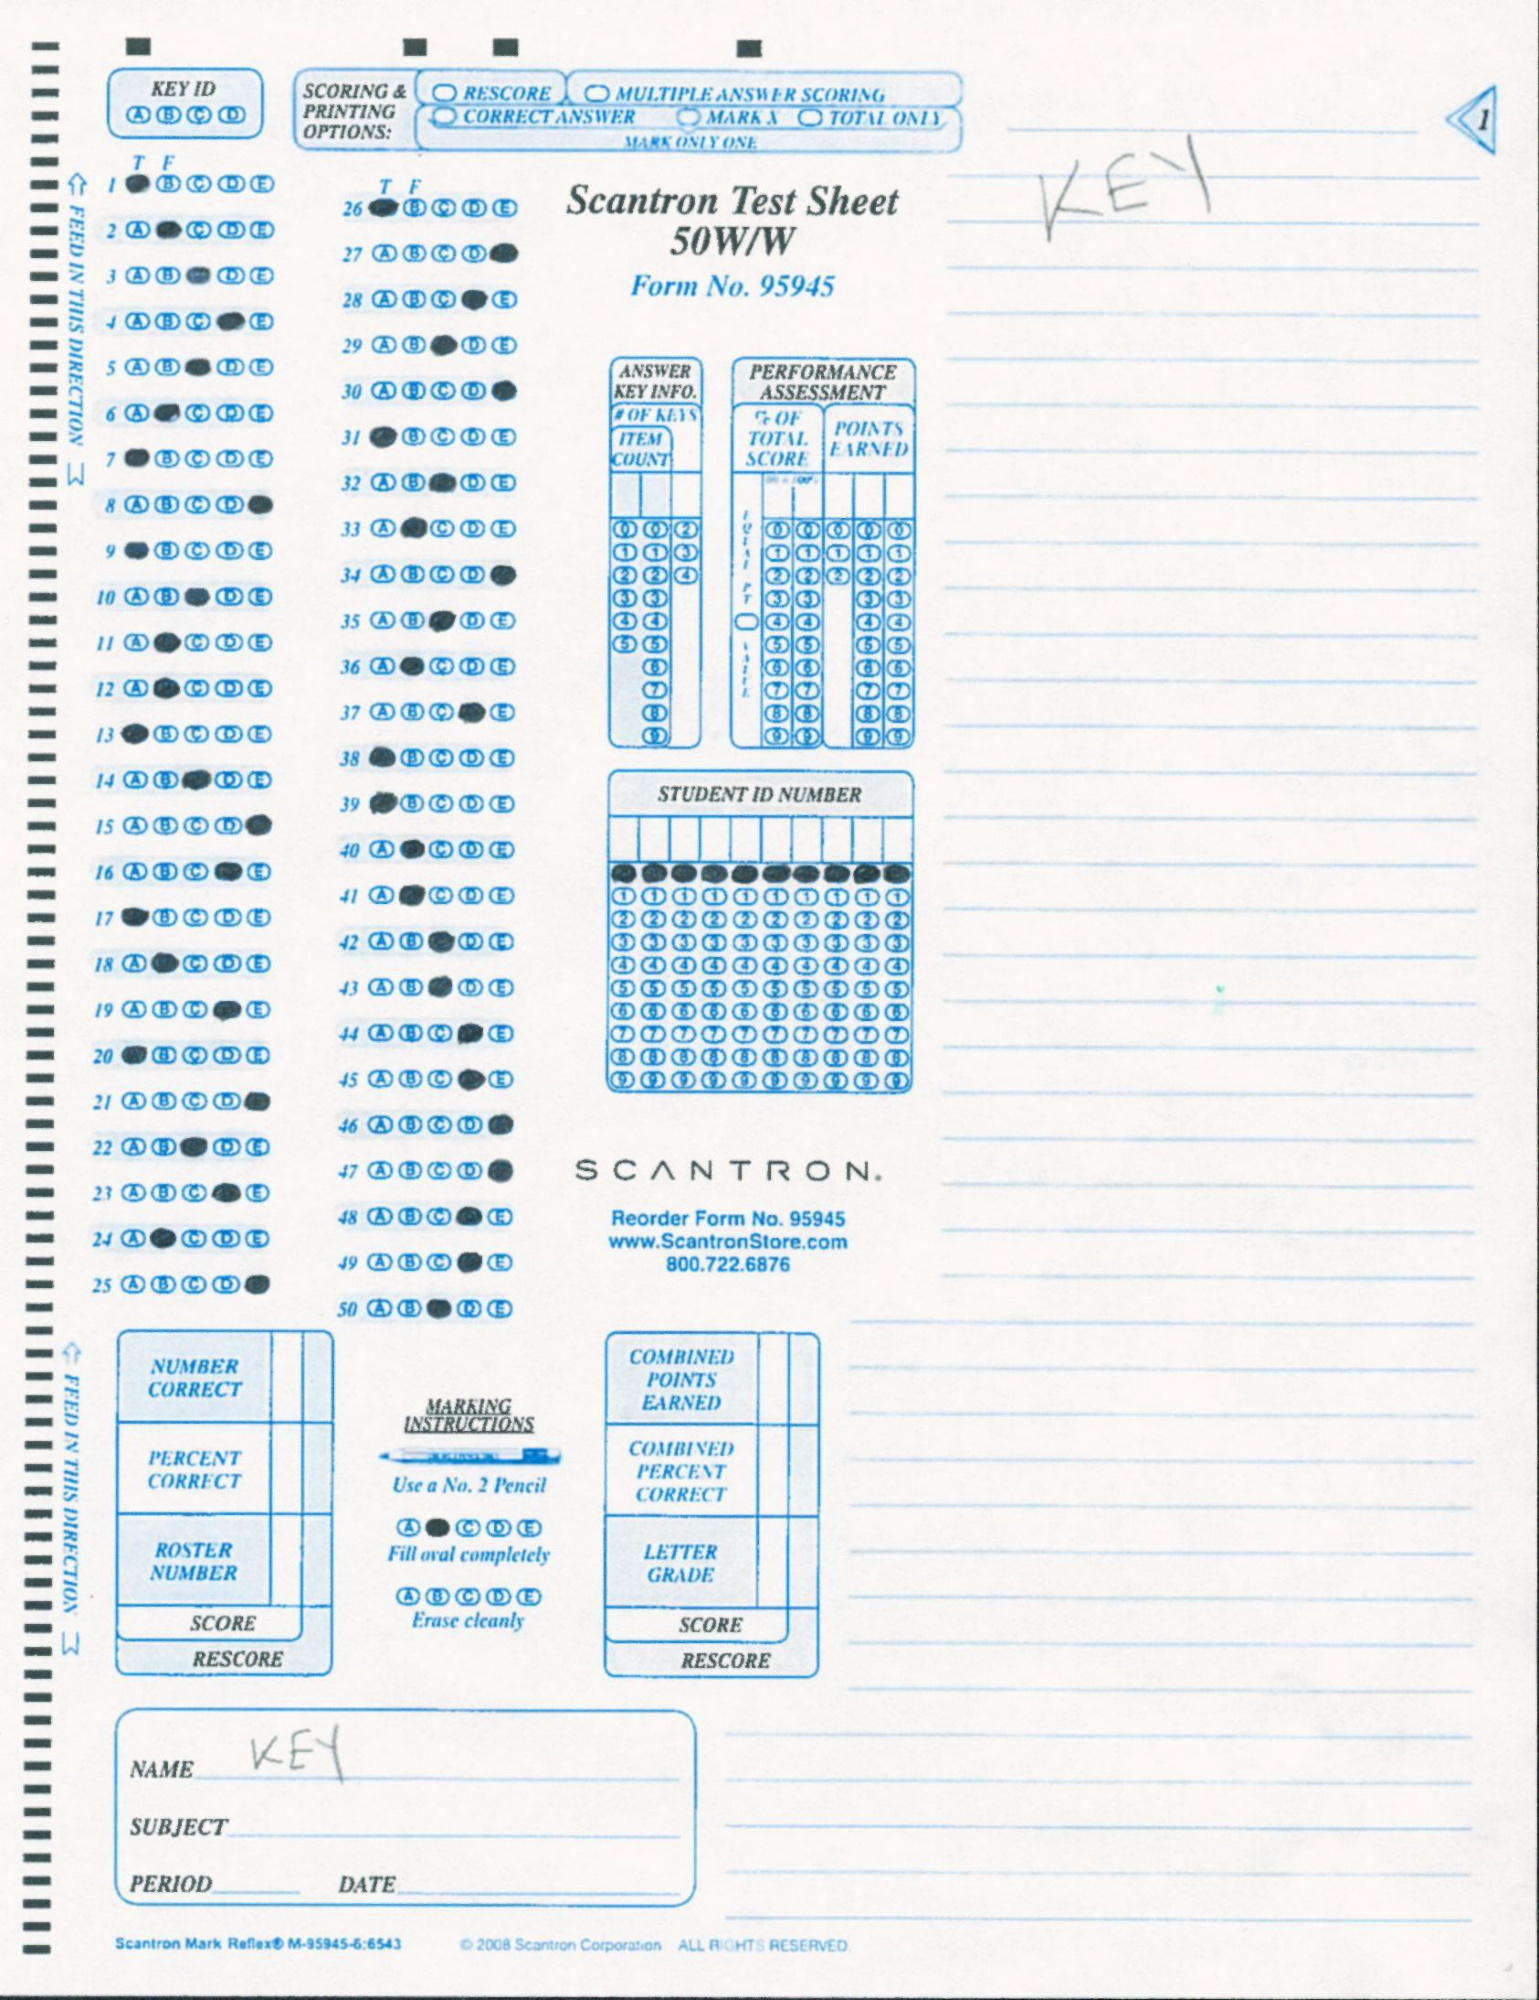 KEY ID
A B C D
SCORING & PRINTING OPTIONS:
RESCORE MULTIPLE ANSWER SCORING
CORRECT ANSWER MARK X TOTAL ONLY
MARK ONLY ONE
1
KEY
FEED IN THIS DIRECTION
T F
1 B C D E
2 A C D E
3 A B D E
4 A B C E
5 A B D E
6 A C D E
7 B C D E
8 A B C D
9 B C D E
10 A B D E
11 A C D E
12 A C D E
13 B C D E
14 A B D E
15 A B C D
16 A B C E
17 B C D E
18 A C D E
19 A B C E
20 B C D E
21 A B C D
22 A B D E
23 A B C E
24 A C D E
25 A B C D
T F
26 B C D E
27 A B C D
28 A B C E
29 A B D E
30 A B C D
31 B C D E
32 A B D E
33 A C D E
34 A B C D
35 A B D E
36 A C D E
37 A B C E
38 B C D E
39 B C D E
40 A C D E
41 A C D E
42 A B D E
43 A B D E
44 A B C E
45 A B C E
46 A B C D
47 A B C D
48 A B C E
49 A B C E
50 A B D E
Scantron Test Sheet
50W/W
Form No. 95945
ANSWER
KEY INFO.
# OF KEYS
ITEM
COUNT
0 0 2
1 1 3
2 2 4
3 3
4 4
5 5
6
7
8
9
PERFORMANCE
ASSESSMENT
% OF
TOTAL
SCORE
POINTS
EARNED
EQUAL PT VALUE
0 0 0 0 0
1 1 1 1 1
2 2 2 2 2
3 3 3 3
4 4 4 4
5 5 5 5
6 6 6 6
7 7 7 7
8 8 8 8
9 9 9 9
STUDENT ID NUMBER
1 1 1 1 1 1 1 1 1 1
2 2 2 2 2 2 2 2 2 2
3 3 3 3 3 3 3 3 3 3
4 4 4 4 4 4 4 4 4 4
5 5 5 5 5 5 5 5 5 5
6 6 6 6 6 6 6 6 6 6
7 7 7 7 7 7 7 7 7 7
8 8 8 8 8 8 8 8 8 8
9 9 9 9 9 9 9 9 9 9
SCANTRON.
Reorder Form No. 95945
www.ScantronStore.com
800.722.6876
FEED IN THIS DIRECTION
NUMBER
CORRECT
PERCENT
CORRECT
ROSTER
NUMBER
SCORE
RESCORE
MARKING
INSTRUCTIONS
Use a No. 2 Pencil
A C D E
Fill oval completely
A B C D E
Erase cleanly
COMBINED
POINTS
EARNED
COMBINED
PERCENT
CORRECT
LETTER
GRADE
SCORE
RESCORE
NAME KEY
SUBJECT
PERIOD DATE
Scantron Mark Reflex® M-95945-6:6543 © 2008 Scantron Corporation ALL RIGHTS RESERVED.